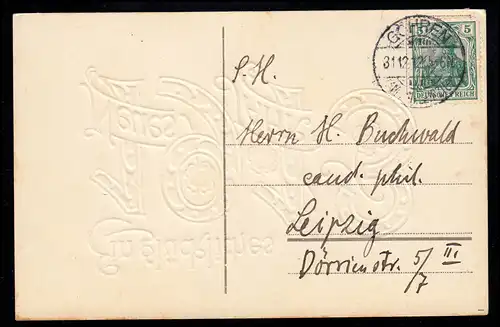 GÖHREN
5 5
DEUTSCHES REICH
31.12.
S. H.
Herrn H. Buchwald
cand. phil.
Leipzig
Dörrienstr. 5/7 III
Neues